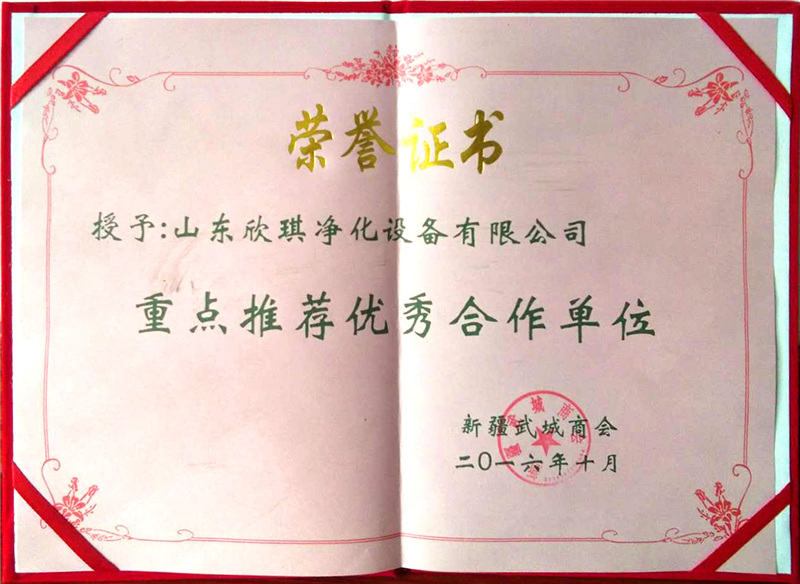 荣誉证书
授予:山东欣琪净化设备有限公司
重点推荐优秀合作单位
新疆武城商会
二〇一六年十月